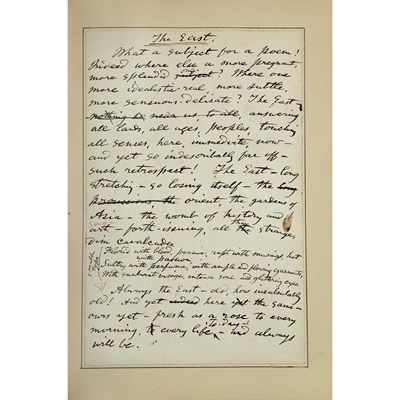 The East.
What a subject for a poem!
Indeed where else a more pregnant,
more splendid one subject? Where one
more idealistic-real, more subtle,
more sensuous-delicate? The East,
nothing so near us, to all, answering
all lands, all ages, peoples, touching
all senses, here, immediate, now—
and yet so indescribably far off—
such retrospect! The East—long
stretching—so losing itself—the long
processions, the orient, the gardens of
Asia—the womb of history and
art—forth-issuing, all those strange,
dim cavalcades
Florid with blood, pensive, rapt with musings, hot
with passion,
Sultry with perfume, with ample and flowing garments,
With sunburnt visage, intense soul and glittering eyes
Always the East—old, how incalculably
old! And yet here the same—
ours yet—fresh as a rose to every
morning, every life, to-day—and always
will be.